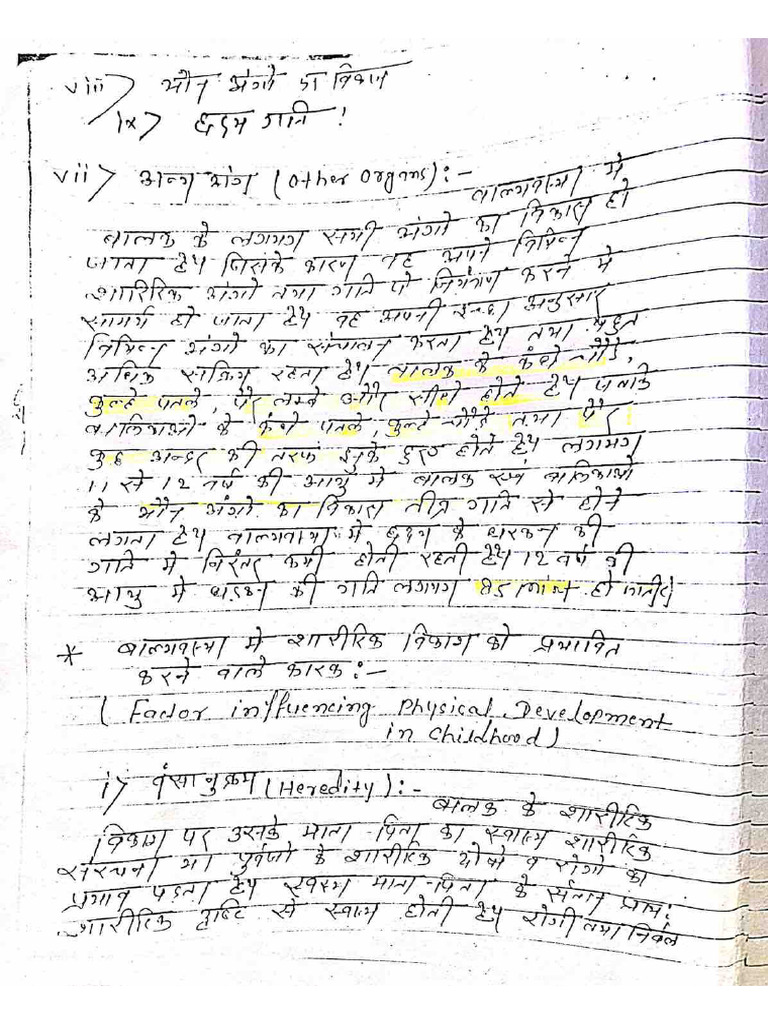 viii> यौन अंगो का विकास
ix> हृदय गति !
vii> अन्य अंग (Other Organs) :-
बाल्यवस्था में
बालक के लगभग सभी अंगो का विकास हो
जाता है जिसके कारण वह अपने विभिन्न
शारिरिक अंगो तथा गति पो नियंत्रण करने मे
सामर्थ हो जाता है वह अपनी इच्छा अनुसार
विभिन्न अंगो का संचालन करता है तथा बहुत
अधिक सक्रिय रहता है बालक के कंधे चौडे,
कुल्हे पतले, पैर लम्बे और सीधे होते है जबकि
बालिकाओ के कंधे पतले, कुल्हे चौडे तथा पैर
कुछ अन्दर की तरफ झुके हुए होते है लगभग
11 से 12 वर्ष की आयु मे बालक एवं बालिकाओ
के यौन अंगो का विकास तीव्र गति से होने
लगता है बाल्यवस्था मे हृदय के धरकन की
गति मे निरंतर कमी होती रहती है 12 वर्ष की
आयु मे धड़कन की गति लगभग हो जाती है
* बाल्यवस्था मे शारीरिक विकास को प्रभावित
करने वाले कारक :-
( Factor influencing Physical Development
in Childhood)
i> वंसानुक्रम (Heredity) :-
बालक के शारीरिक
विकास पर उसके माता-पिता का स्वास्थ शारीरिक
संरचना या पुर्वजो के शारीरिक दोषो व रोगो का
प्रभाव पडता है स्वस्थ माता-पिता के संतान प्रायः
शारीरिक दृष्टि से स्वस्थ होती है रोगी तथा निर्बल